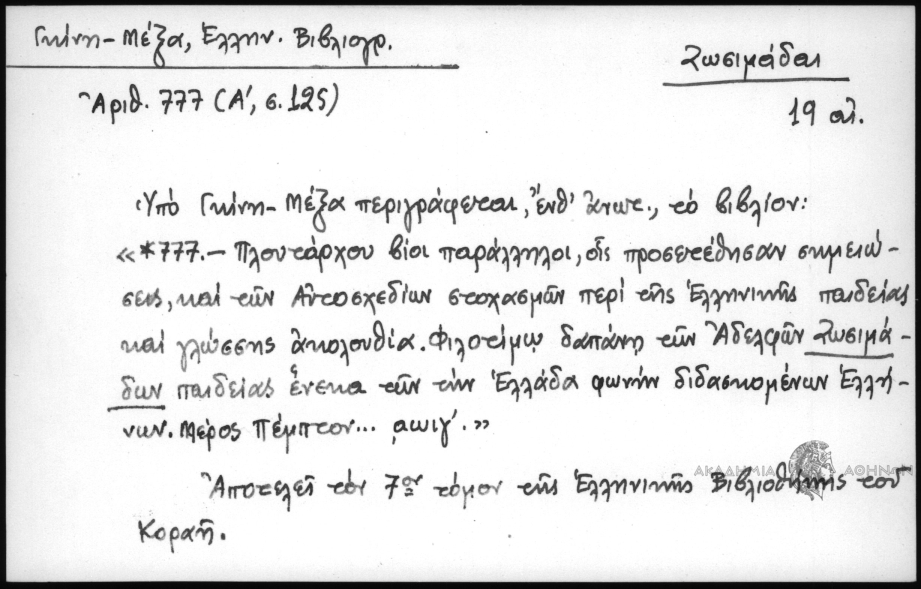 Γκίνη-Μέξα, Ἑλλην. Βιβλιογρ.
Ζωσιμάδαι
Ἀριθ. 777 (Α', σ. 125)
19 αἰ.
Ὑπὸ Γκίνη-Μέξα περιγράφεται, ἔνθ' ἄνωτ., τὸ βιβλίον:
«*777.- Πλουτάρχου βίοι παράλληλοι, οἷς προσετέθησαν σημειώ-
σεις, καὶ τῶν Αὐτοσχεδίων στοχασμῶν περὶ τῆς Ἑλληνικῆς παιδείας
καὶ γλώσσης ἀκολουθία. Φιλοτίμῳ δαπάνῃ τῶν Ἀδελφῶν Ζωσιμά-
δων παιδείας ἕνεκα τῶν τὴν Ἑλλάδα φωνὴν διδασκομένων Ἑλλή-
νων. Μέρος Πέμπτον... ͵αωιγ'.»
Ἀποτελεῖ τὸν 7ον τόμον τῆς Ἑλληνικῆς Βιβλιοθήκης τοῦ
Κοραῆ.
ΑΚΑΔΗΜΙΑ ΑΘΗΝΩΝ